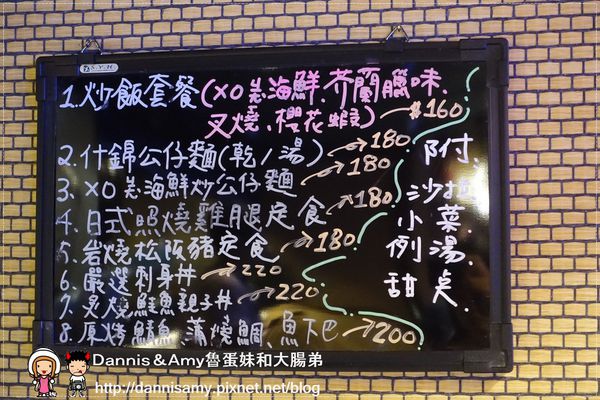 S.Y.H
1.炒飯套餐(XO醬海鮮、芥蘭臘味、
叉燒、櫻花蝦)→$160
2.什錦公仔麵(乾/湯)→180
3.XO醬海鮮炒公仔麵→180
4.日式照燒雞腿定食→180
5.岩燒松阪豬定食→180
6.嚴選刺身丼→220
7.炙燒鮭魚親子丼→220
8.原烤鯖魚、蒲燒鯛、魚下巴→200
附、
沙拉
小菜、
例湯、
甜点
Dannis&Amy魯蛋妹和大腸弟
http://dannisamy.pixnet.net/blog